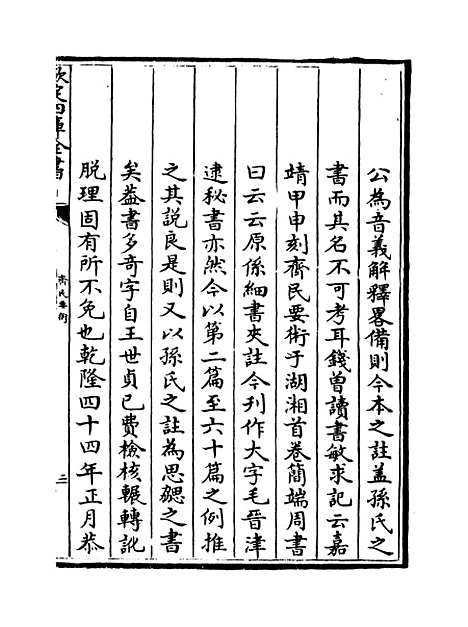 公為音義解釋畧備則今本之註盖孫氏之
書而其名不可考耳錢曽讀書敏求記云嘉
靖甲申刻齊民要術于湖湘首卷簡端周書
曰云云原係細書夾註今刋作大字毛晉津
逮秘書亦然今以第二篇至六十篇之例推
之其説良是則又以孫氏之註為思勰之書
矣葢書多竒字自王世貞已費檢核輾轉訛
脱理固有所不免也乾隆四十四年正月恭
欽定四庫全書
齊民要術
三